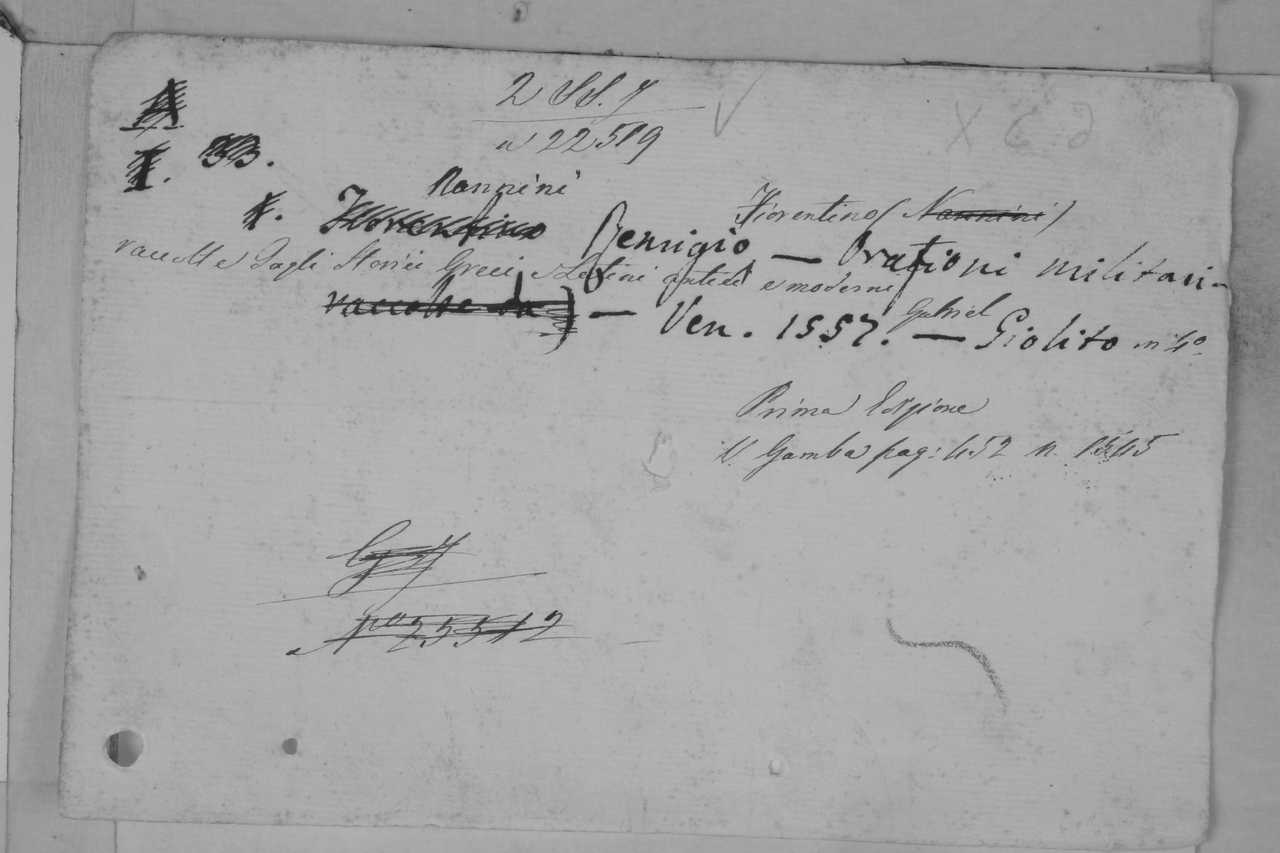 A
2 SS. 7
a 22519
X C. d
I. 33.
Nannini
Fiorentino (Nannini)
Fiorentino Remigio — Orationi militari
raccolte dagli Storici Greci e Latini antichi e moderni
raccolte da) — Ven. 1557. — Gabriel Giolito in 4º
Prima Edizione
V. Gamba pag: 452 n. 1545